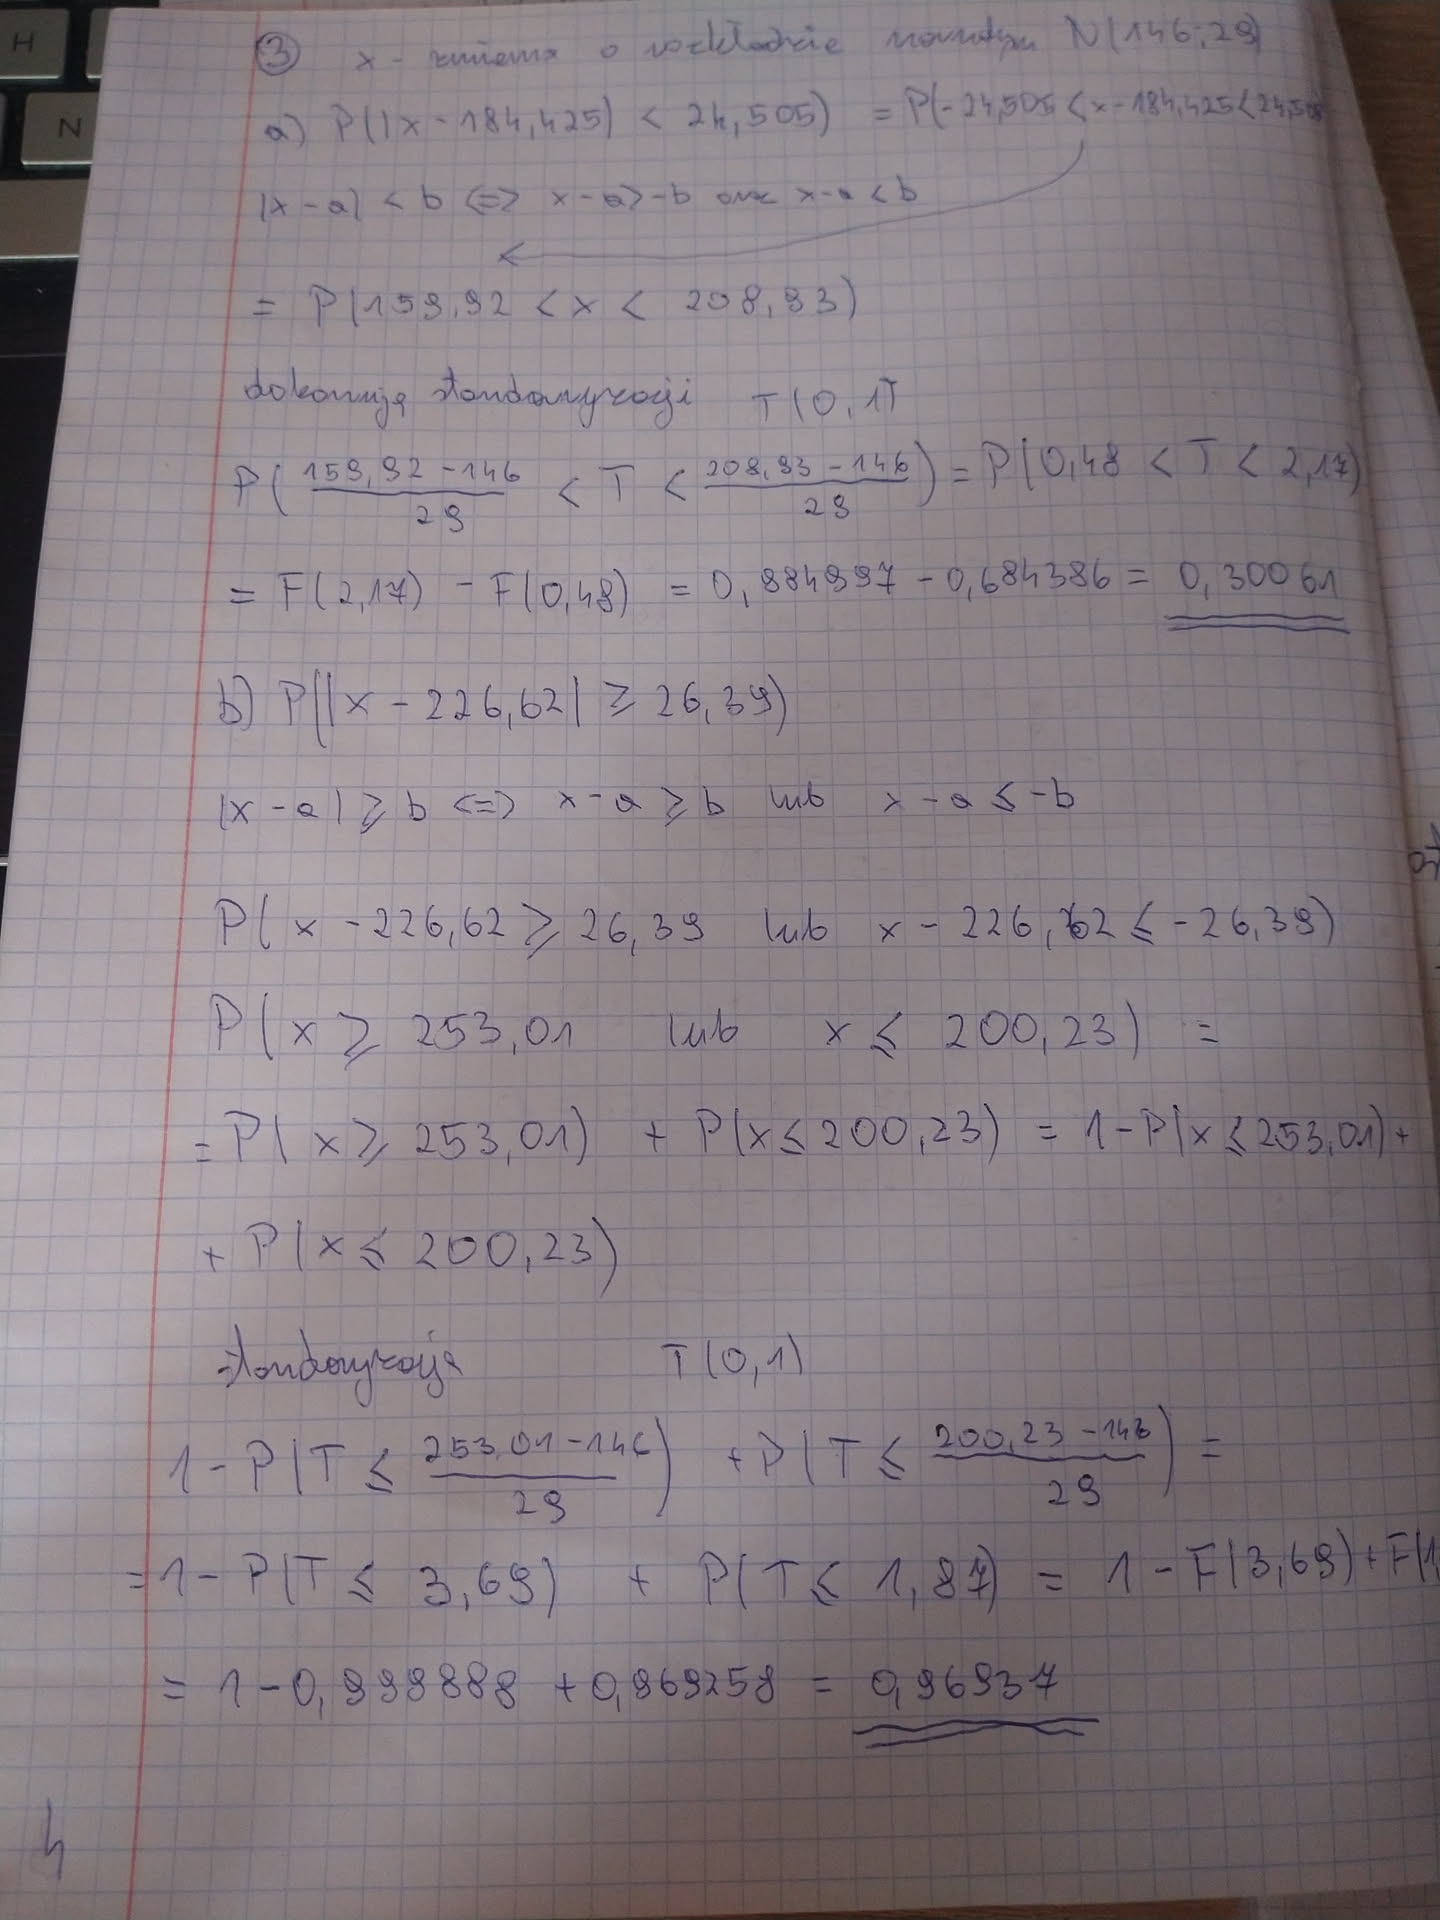 H
N
③ x - zmienna o rozkładzie normalnym N(146; 29)
a) P(|x - 184,425| < 24,505) = P(-24,505 < x - 184,425 < 24,505
|x - a| < b <=> x - a > -b oraz x - a < b
= P(159,92 < x < 208,93)
dokonuję standaryzacji T(0,1)
P( (159,92 - 146)/29 < T < (208,93 - 146)/29 ) = P(0,48 < T < 2,17)
= F(2,17) - F(0,48) = 0,984997 - 0,684386 = 0,30061
b) P(|x - 226,62| ≥ 26,39)
|x - a| ≥ b <=> x - a ≥ b lub x - a ≤ -b
P( x - 226,62 ≥ 26,39 lub x - 226,62 ≤ -26,39)
P( x ≥ 253,01 lub x ≤ 200,23) =
= P( x ≥ 253,01) + P(x ≤ 200,23) = 1 - P(x ≤ 253,01) +
+ P(x ≤ 200,23)
standaryzacja T(0,1)
1 - P(T ≤ (253,01 - 146)/29) + P(T ≤ (200,23 - 146)/29) =
= 1 - P(T ≤ 3,69) + P(T ≤ 1,87) = 1 - F(3,69) + F(1,
= 1 - 0,999888 + 0,969258 = 0,96937